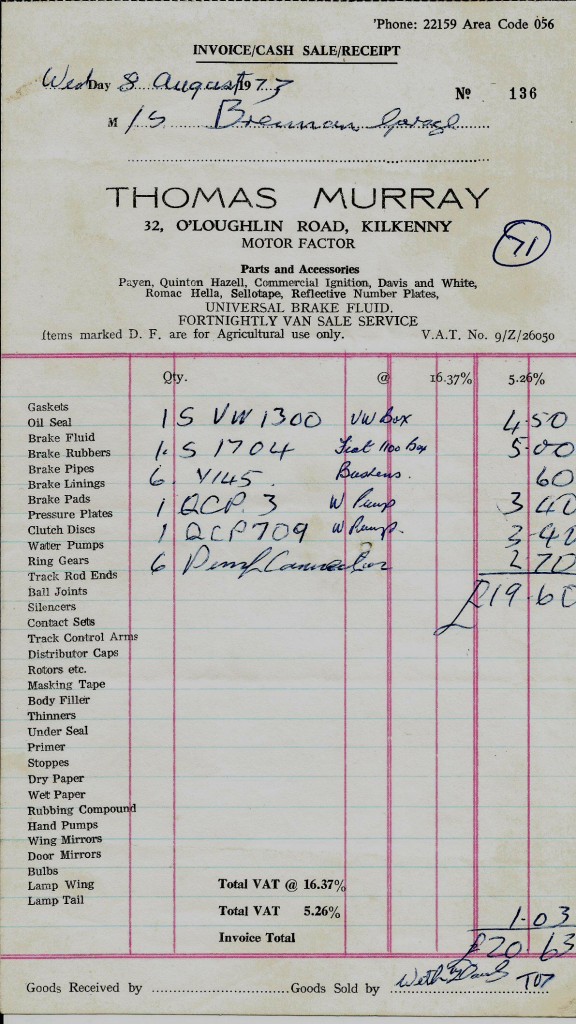 'Phone: 22159 Area Code 056
INVOICE/CASH SALE/RECEIPT
Wed Day 8 August 1973
No 136
M /S Brennan Garage
THOMAS MURRAY
32, O'LOUGHLIN ROAD, KILKENNY
MOTOR FACTOR
71
Parts and Accessories
Payen, Quinton Hazell, Commercial Ignition, Davis and White,
Romac Hella, Sellotape, Reflective Number Plates,
UNIVERSAL BRAKE FLUID.
FORTNIGHTLY VAN SALE SERVICE
Items marked D. F. are for Agricultural use only. V.A.T. No. 9/Z/26050
Qty. @ 16.37% 5.26%
Gaskets
Oil Seal 1 S VW 1300 VW Box 4.50
Brake Fluid
Brake Rubbers 1 S 1704 Fiat 1100 Box 5.00
Brake Pipes
Brake Linings 6 Y145 60
Brake Pads
Pressure Plates 1 QCP 3 W Pump 3 40
Clutch Discs
Water Pumps 1 QCP 709 W Pump. 3.40
Ring Gears
Track Rod Ends 6 2 70
Ball Joints £19.60
Silencers
Contact Sets
Track Control Arms
Distributor Caps
Rotors etc.
Masking Tape
Body Filler
Thinners
Under Seal
Primer
Stoppes
Dry Paper
Wet Paper
Rubbing Compound
Hand Pumps
Wing Mirrors
Door Mirrors
Bulbs
Lamp Wing Total VAT @ 16.37%
Lamp Tail
Total VAT 5.26% 1.03
Invoice Total £20.63
Goods Received by Goods Sold by